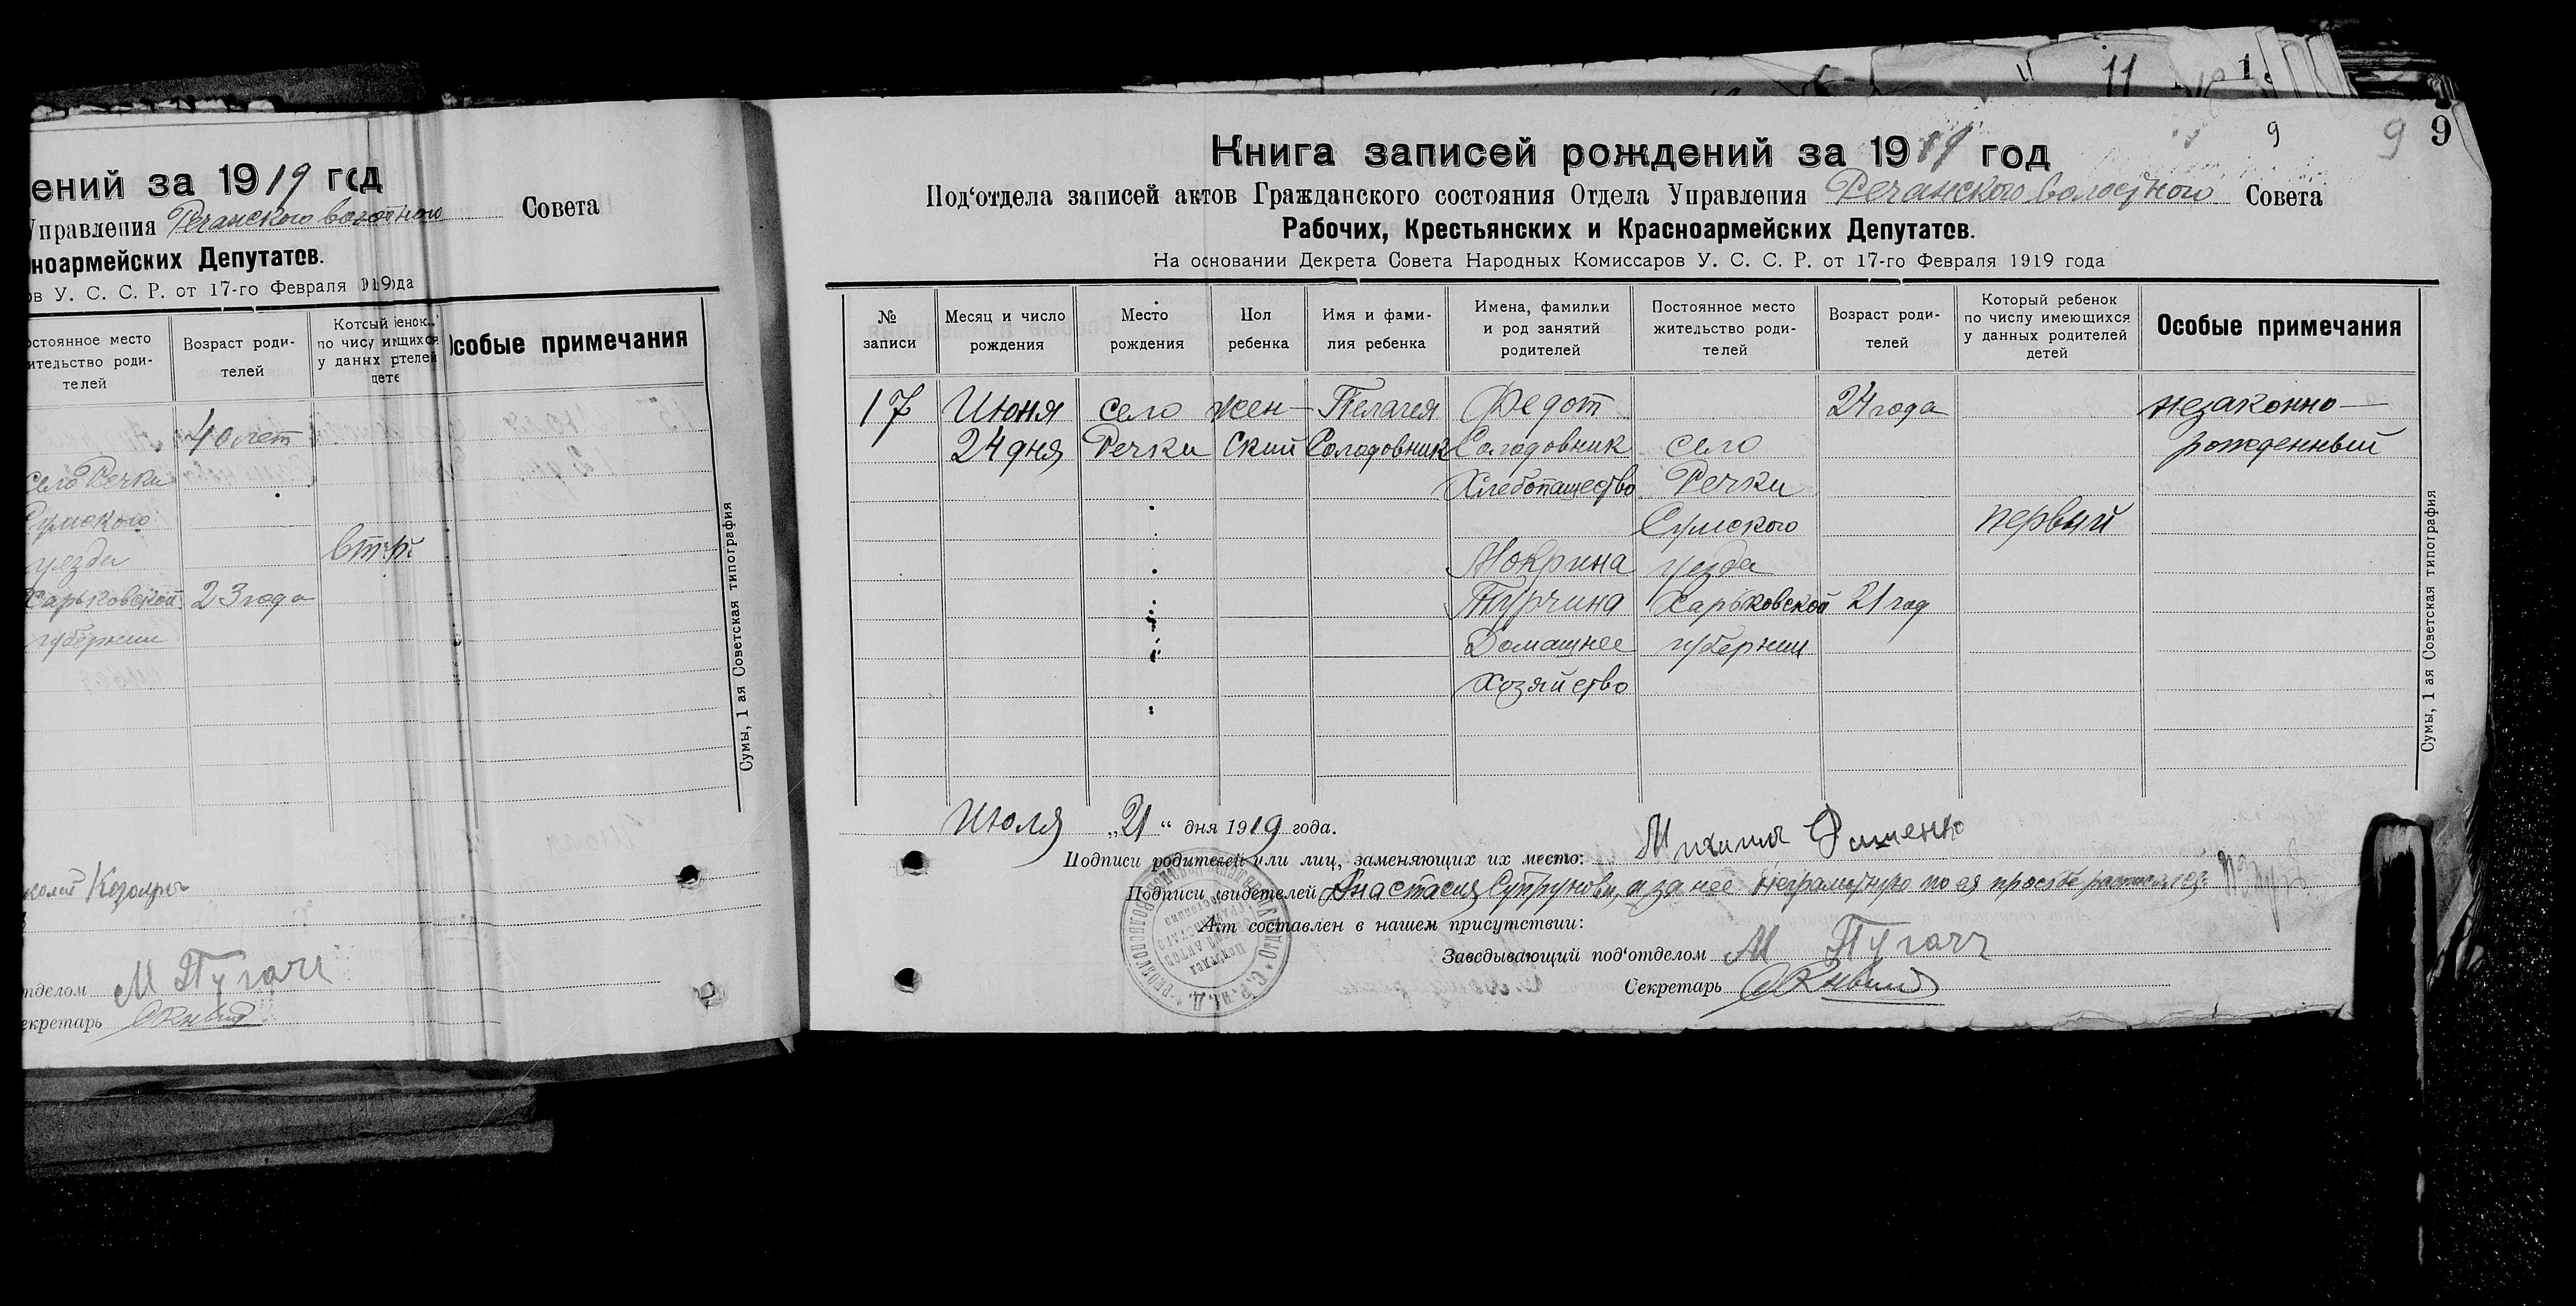 ений за 1919 год
Управления Речанского волостного Совета
ноармейских Депутатов.
ов У. С. С. Р. от 17-го Февраля 1919 года
остоянное место
ительство роди-
телей
Возраст роди-
телей
у данных
Особые примечания
40 лет
Село Речки
Сумского
уезда
Харьковской 23 года
губернии
Сумы, 1 ая Советская типография
М Пугач
тделом
екретарь
9
9 9
Книга записей рождений за 1919 год
Под‘отдела записей актов Гражданского состояния Отдела Управления Речанского волостного Совета
Рабочих, Крестьянских и Красноармейских Депутатов.
На основании Декрета Совета Народных Комиссаров У. С. С. Р. от 17-го Февраля 1919 года
№
записи
Месяц и число
рождения
Место
рождения
Пол
ребенка
Имя и фами-
лия ребенка
Имена, фамилии
и род занятий
родителей
Постоянное место
жительство роди-
телей
Возраст роди-
телей
Который ребенок
по числу имеющихся
у данных родителей
детей
Особые примечания
17 Июня село жен- Пелагея Федот 24 года незаконно-
24 дня Речки ский Солодовник Солодовник село рожденный
Хлебопашество Речки
Сумского первый
Мокрина уезда
Турчина Харьковской 21 год
Домашнее губернии
Хозяйство
Сумы, 1 ая Советская типография
Июля „21“ дня 1919 года.
Подписи родителей или лиц, заменяющих их место: Михаил
Подписи свидетелей Анастасия Супрунова, а за нее неграмотную по ея просьбе
Акт составлен в нашем присутствии:
Заведывающий под‘отделом М Пугач
Секретарь